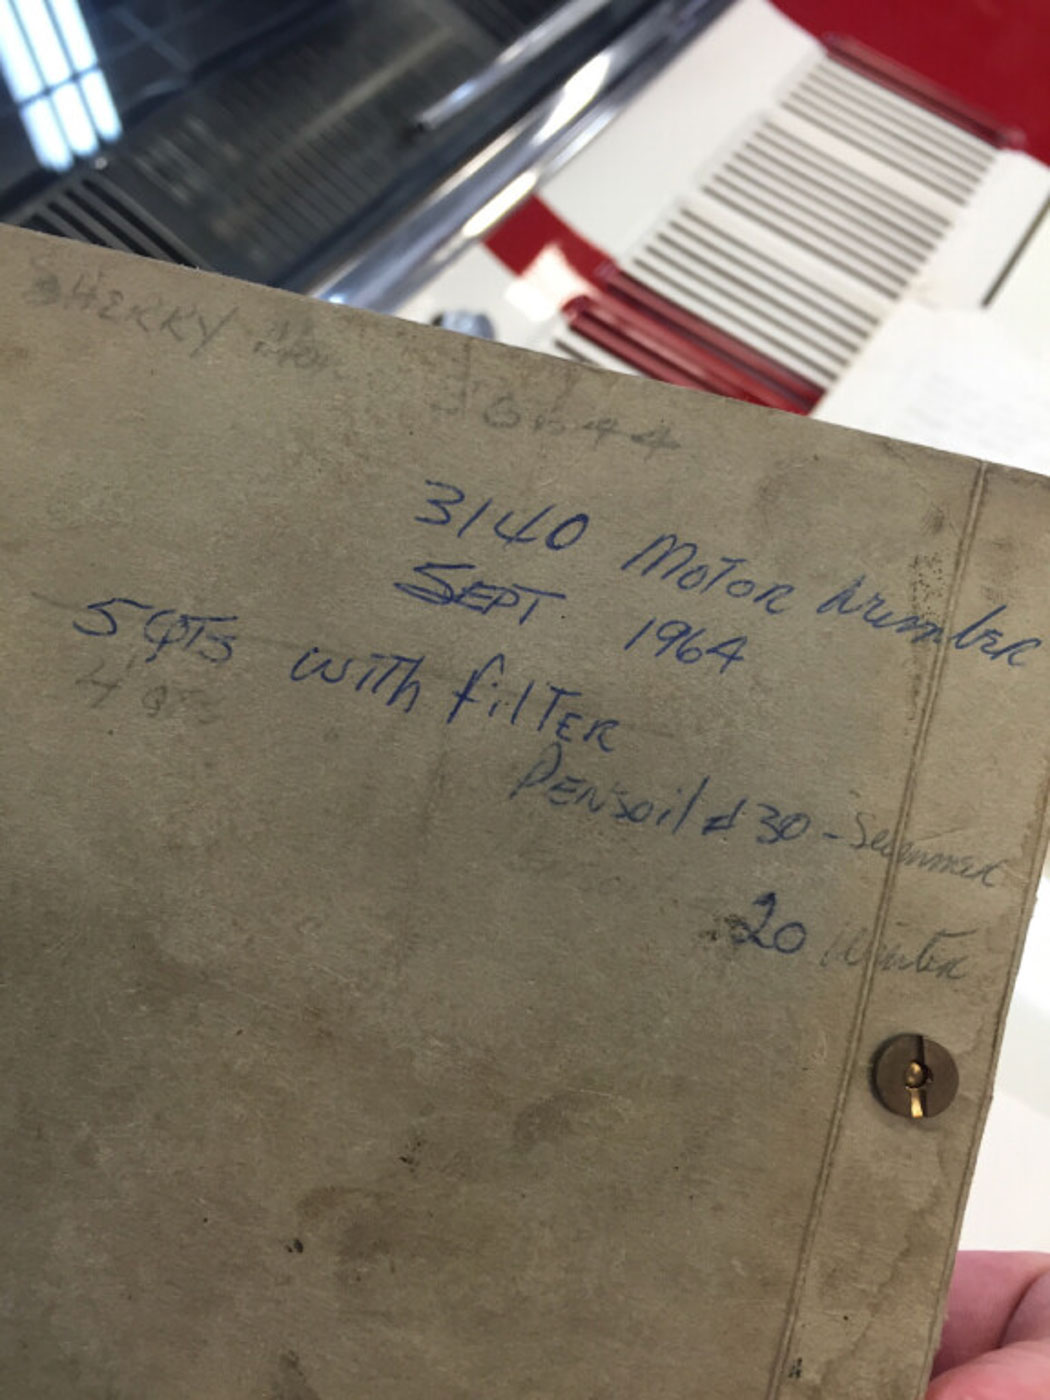 SHERRY
3140 MOTOR NumbER
SEPT 1964
5 QTS with filTER
4 QTS
PENSoil # 30 - Summer
20 Winter